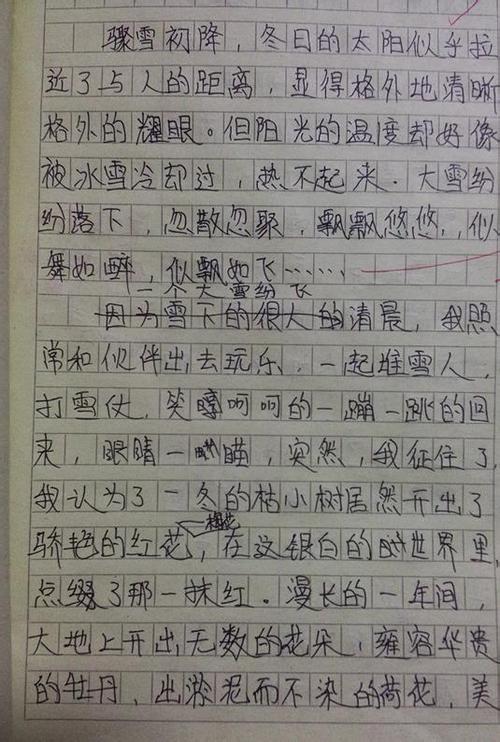 骤雪初降，冬日的太阳似乎拉
近了与人的距离，显得格外地清晰
格外的耀眼。但阳光的温度却好像
被冰雪冷却过，热不起来．大雪纷
纷落下，忽散忽聚，飘飘悠悠，似
舞如醉，似飘如飞……
一个大雪纷飞
因为雪下的很大的清晨，我照
常和伙伴出去玩乐．一起堆雪人，
打雪仗，笑呵呵的一蹦一跳的回
来，眼睛一瞄，突然，我征住了
我认为了一冬的枯小树居然开出了
梅花
骄艳的红花，在这银白的世界里，
点缀了那一抹红．漫长的一年间，
大地上开出无数的花朵，雍容华贵
的牡丹，出淤泥而不染的荷花，美